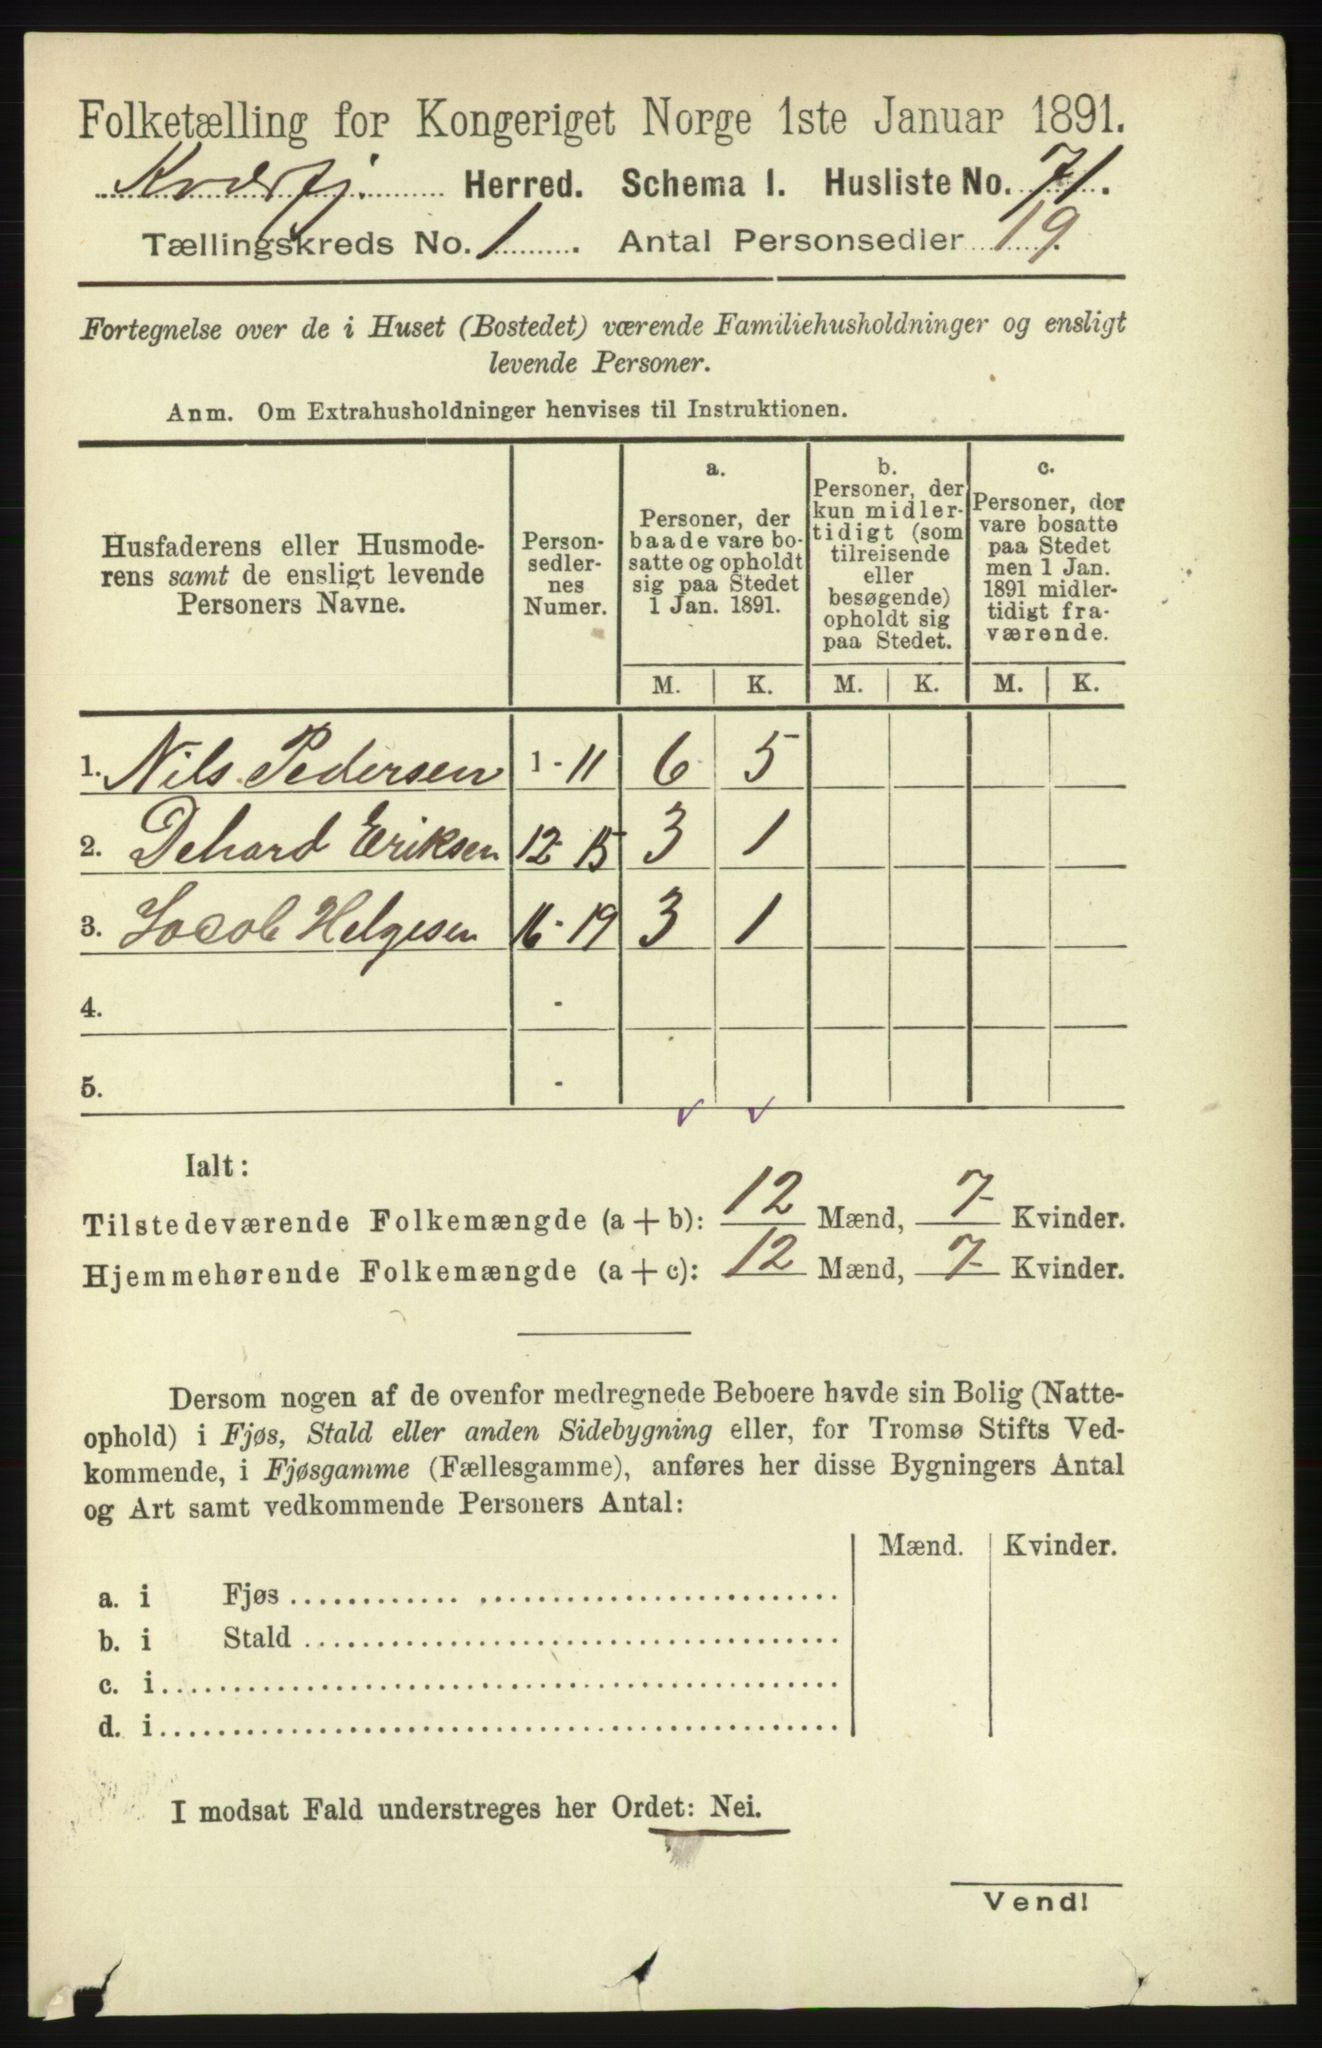 Folketælling for Kongeriget Norge 1ste Januar 1891.
Kvæfj. Herred. Schema I. Husliste No. 71.
Tællingskreds No. 1. Antal Personsedler 19.
Fortegnelse over de i Huset (Bostedet) værende Familiehusholdninger og ensligt
levende Personer.
Anm. Om Extrahusholdninger henvises til Instruktionen.
Husfaderens eller Husmode-
rens samt de ensligt levende
Personers Navne.
Person-
sedler-
nes
Numer.
a.
Personer, der
baade vare bo-
satte og opholdt
sig paa Stedet
1 Jan. 1891.
b.
Personer, der
kun midler-
tidigt (som
tilreisende
eller
besøgende)
opholdt sig
paa Stedet.
c.
Personer, der
vare bosatte
paa Stedet
men 1 Jan.
1891 midler-
tidigt fra-
værende.
M. K. M. K. M. K.
1. Nils Pedersen 1 - 11 6 5
2. Dehard Eriksen 12 - 15 3 1
3. Jacob Helgesen 16 - 19 3 1
4. -
5. -
Ialt:
Tilstedeværende Folkemængde (a + b): 12 Mænd, 7 Kvinder.
Hjemmehørende Folkemængde (a + c): 12 Mænd, 7 Kvinder.
Dersom nogen af de ovenfor medregnede Beboere havde sin Bolig (Natte-
ophold) i Fjøs, Stald eller anden Sidebygning eller, for Tromsø Stifts Ved-
kommende, i Fjøsgamme (Fællesgamme), anføres her disse Bygningers Antal
og Art samt vedkommende Personers Antal:
Mænd. Kvinder.
a. i Fjøs
b. i Stald
c. i
d. i
I modsat Fald understreges her Ordet: Nei.
Vend!